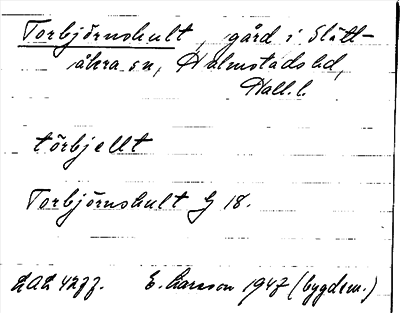 Torbjörnshult, gård i Slätt-
åkra sn, Halmstads hd,
Hall. l.
törbjellt
Torbjörnshult G 18.
E. Larsson 1947 (bygdem.)